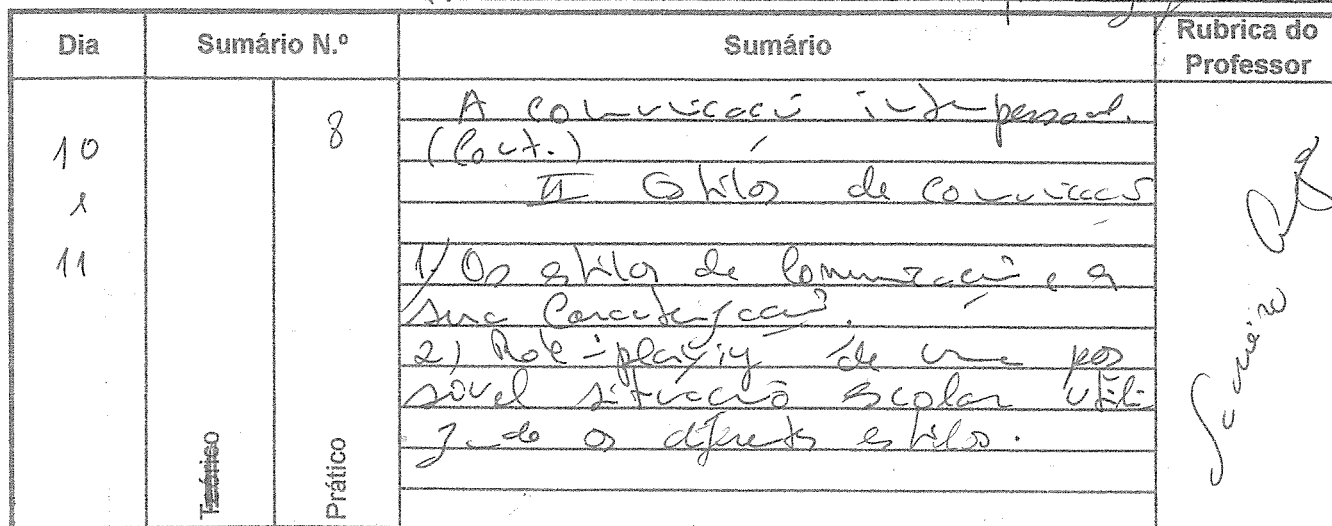 Dia
Sumário N.º
Sumário
Rubrica do
Professor
10
1
11
8
A comunicação interpessoal.
(Cont.)
II Estilos de comunicação
1) Os estilos de comunicação e a
sua Caracterização.
2) Role-playing de uma pos
sível situação escolar utili
zando os diferentes estilos.
Teórico
Prático